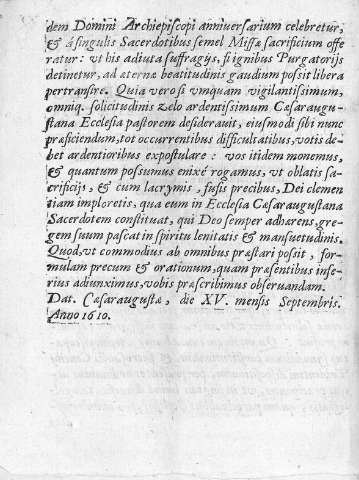 dem Domini Archiepiscopi anniuersarium celebretur,
& à singulis Sacerdotibus semel Missæ sacrificium offe
ratur: vt his adiuta suffragijs, si ignibus Purgatorijs
detinetur, ad æternæ beatitudinis gaudium possit libera
pertransire. Quia vero si vmquam vigilantissimum,
omniq. solicitudinis zelo ardentissimum Cæsaraugu-
stana Ecclesia pastorem desiderauit, eiusmodi sibi nunc
præficiendum, tot occurrentibus difficultatibus, votis de-
bet ardentioribus expostulare: vos itidem monemus,
& quantum possumus enixé rogamus, vt oblatis sa-
crificijs, & cum lacrymis, fusis precibus, Dei clemen
tiam imploretis, qua eum in Ecclesia Cæsaraugustana
Sacerdotem constituat, qui Deo semper adhærens, gre-
gem suum pascat in spiritu lenitatis & mansuetudinis.
Quod, vt commodius ab omnibus præstari possit, for-
mulam precum & orationum, quam præsentibus inse-
rius adiunximus, vobis præscribimus obseruandam.
Dat. Cæsaraugustæ, die XV. mensis Septembris.
Anno 1610.